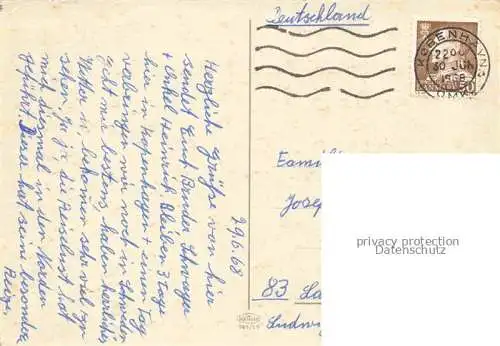 Deutschland
KØBENHAVN
22
30 JUN
1968
OMK.
29.6.68
Herzliche Grüße von hier
sendet Euch Bruder Schwager
+ Onkel Heinrich. Bleiben 3 Tage
hier in Kopenhagen + einen Tag
verbringen wir noch in Schweden
Geht mir bestens, haben herrliches
Wetter u. bekamen sehr viel zu
sehen. Ja ja die Reiselust hat
mich diesmal in den Norden
geführt. Denn hat seine besonderen
Reize.
Famili
Josep
83 La
Ludwig
privacy protection
Oldthing.de